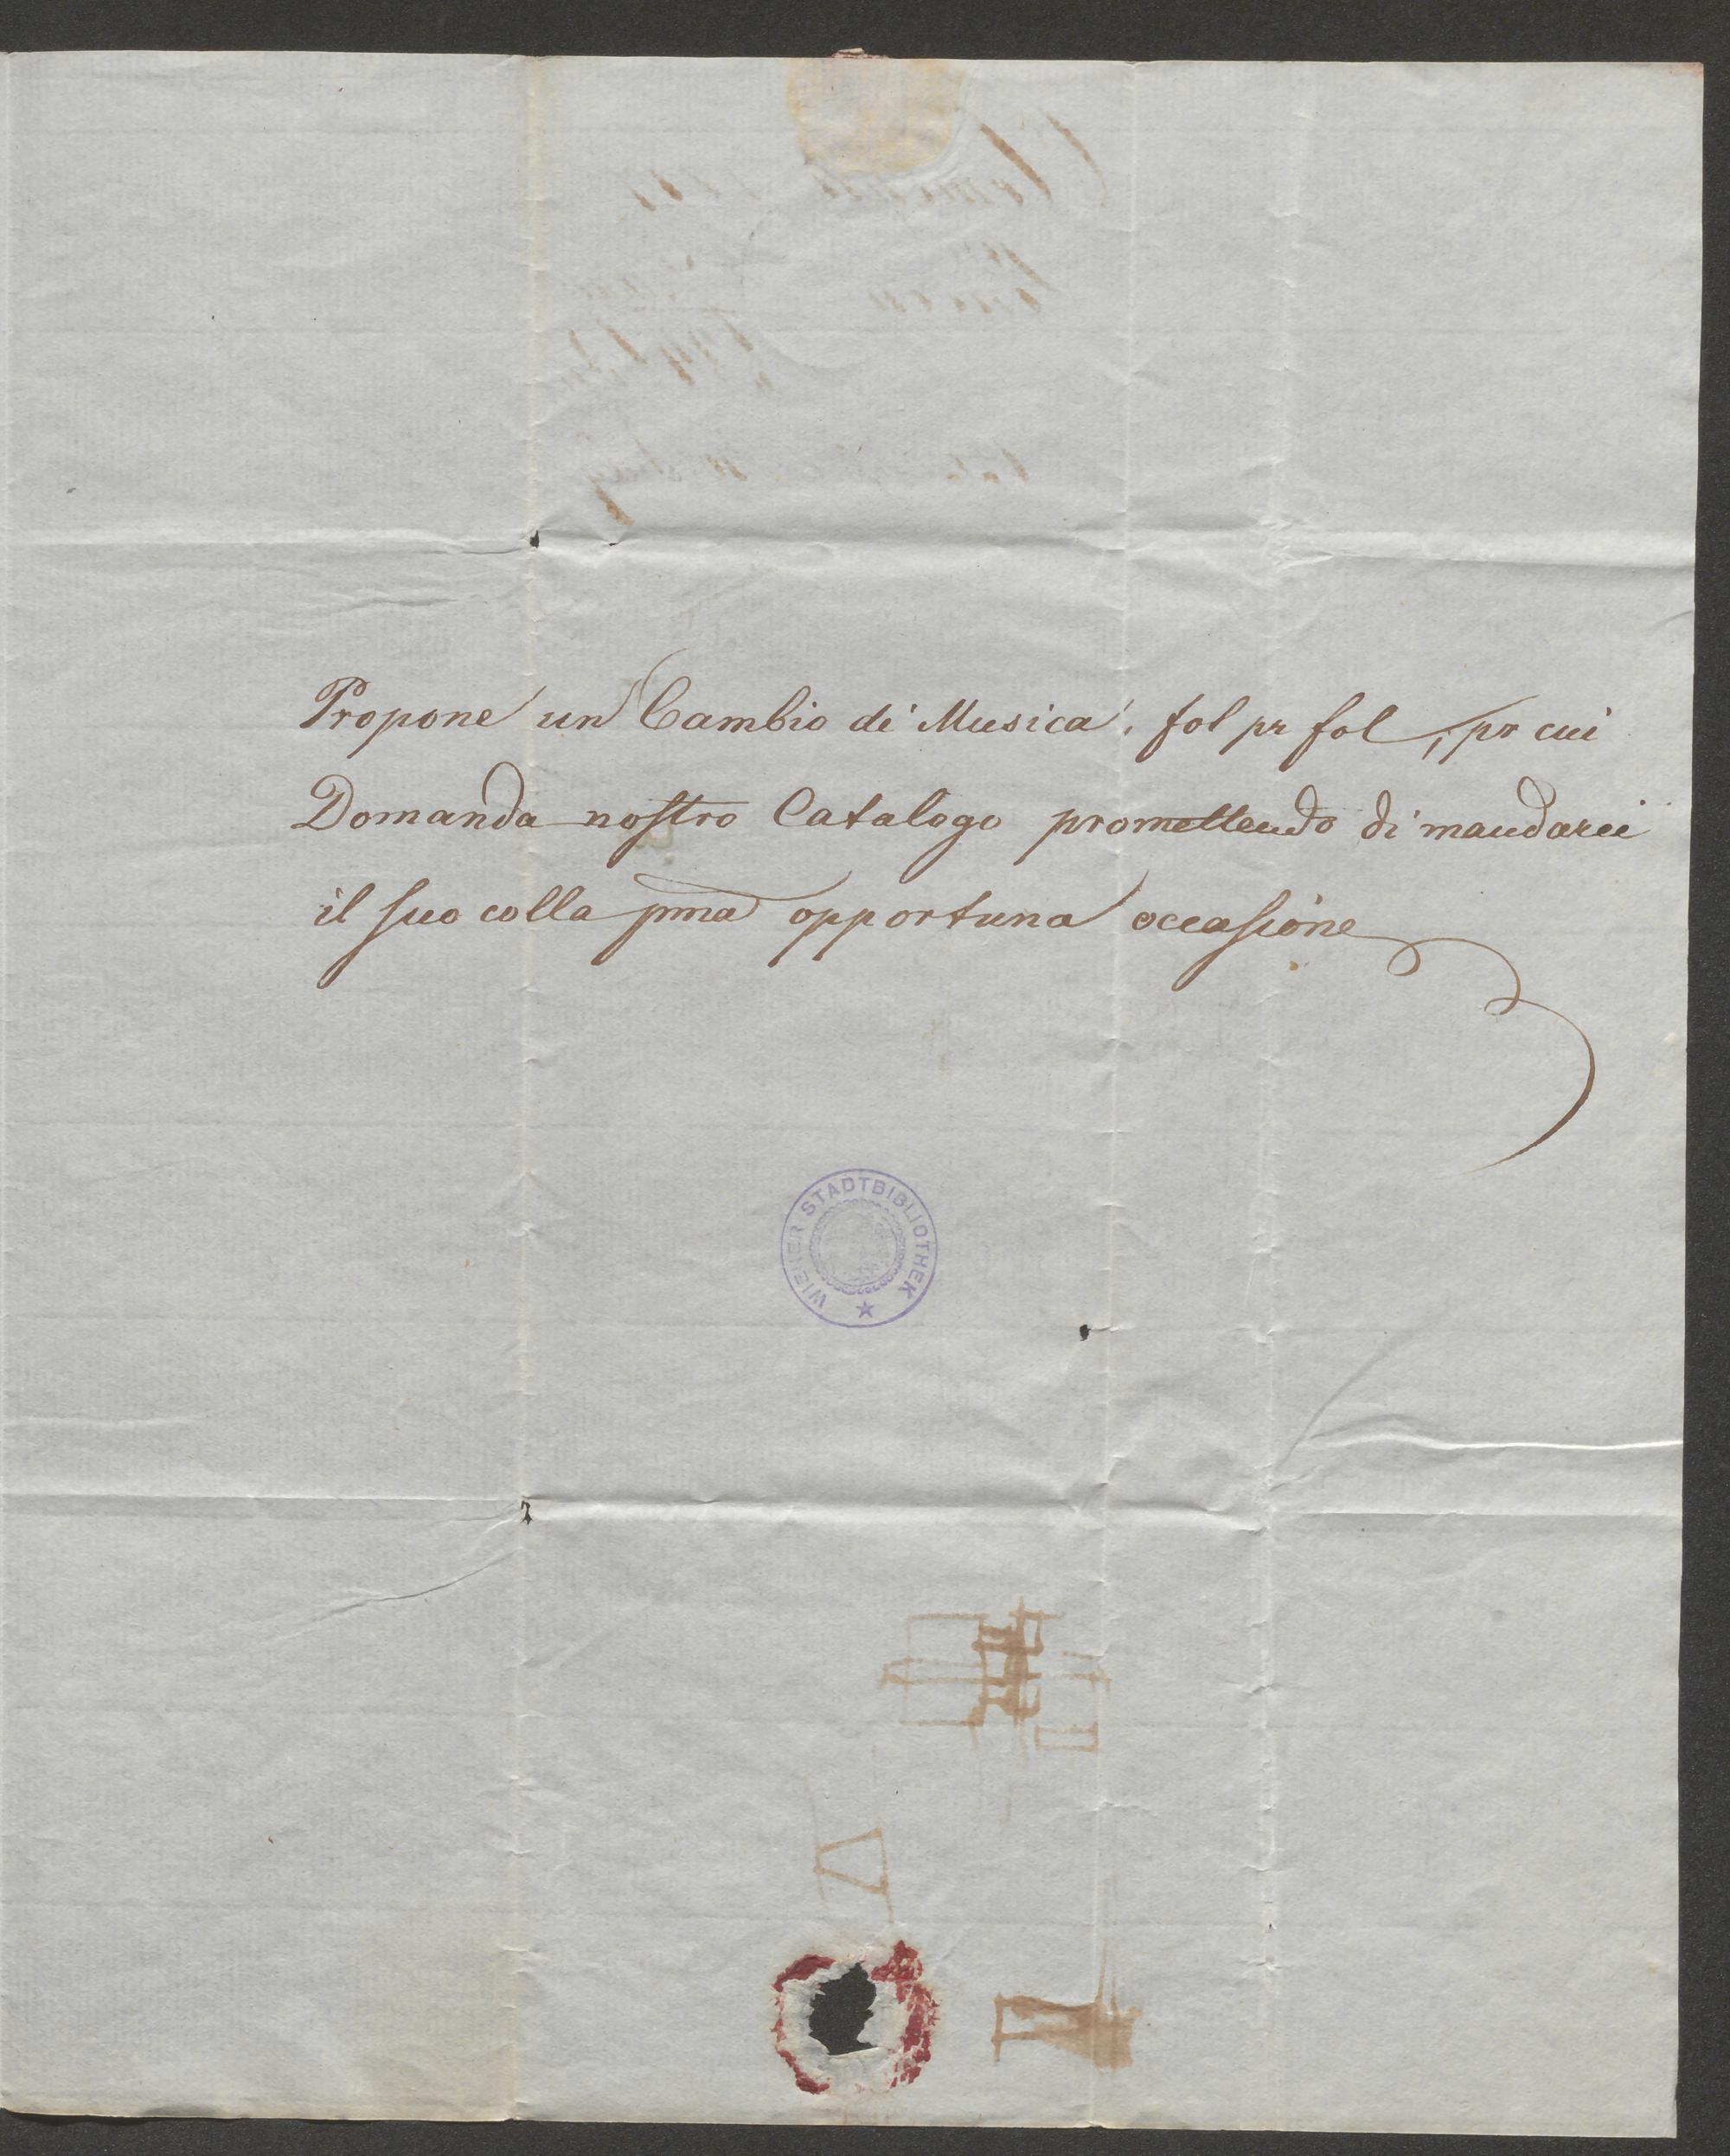 Propone un Cambio di Musica, fol pr fol, pr cui
Domanda nostro Catalogo promettendo di mandarci
il suo colla pma opportuna occasione
WIENER STADTBIBLIOTHEK